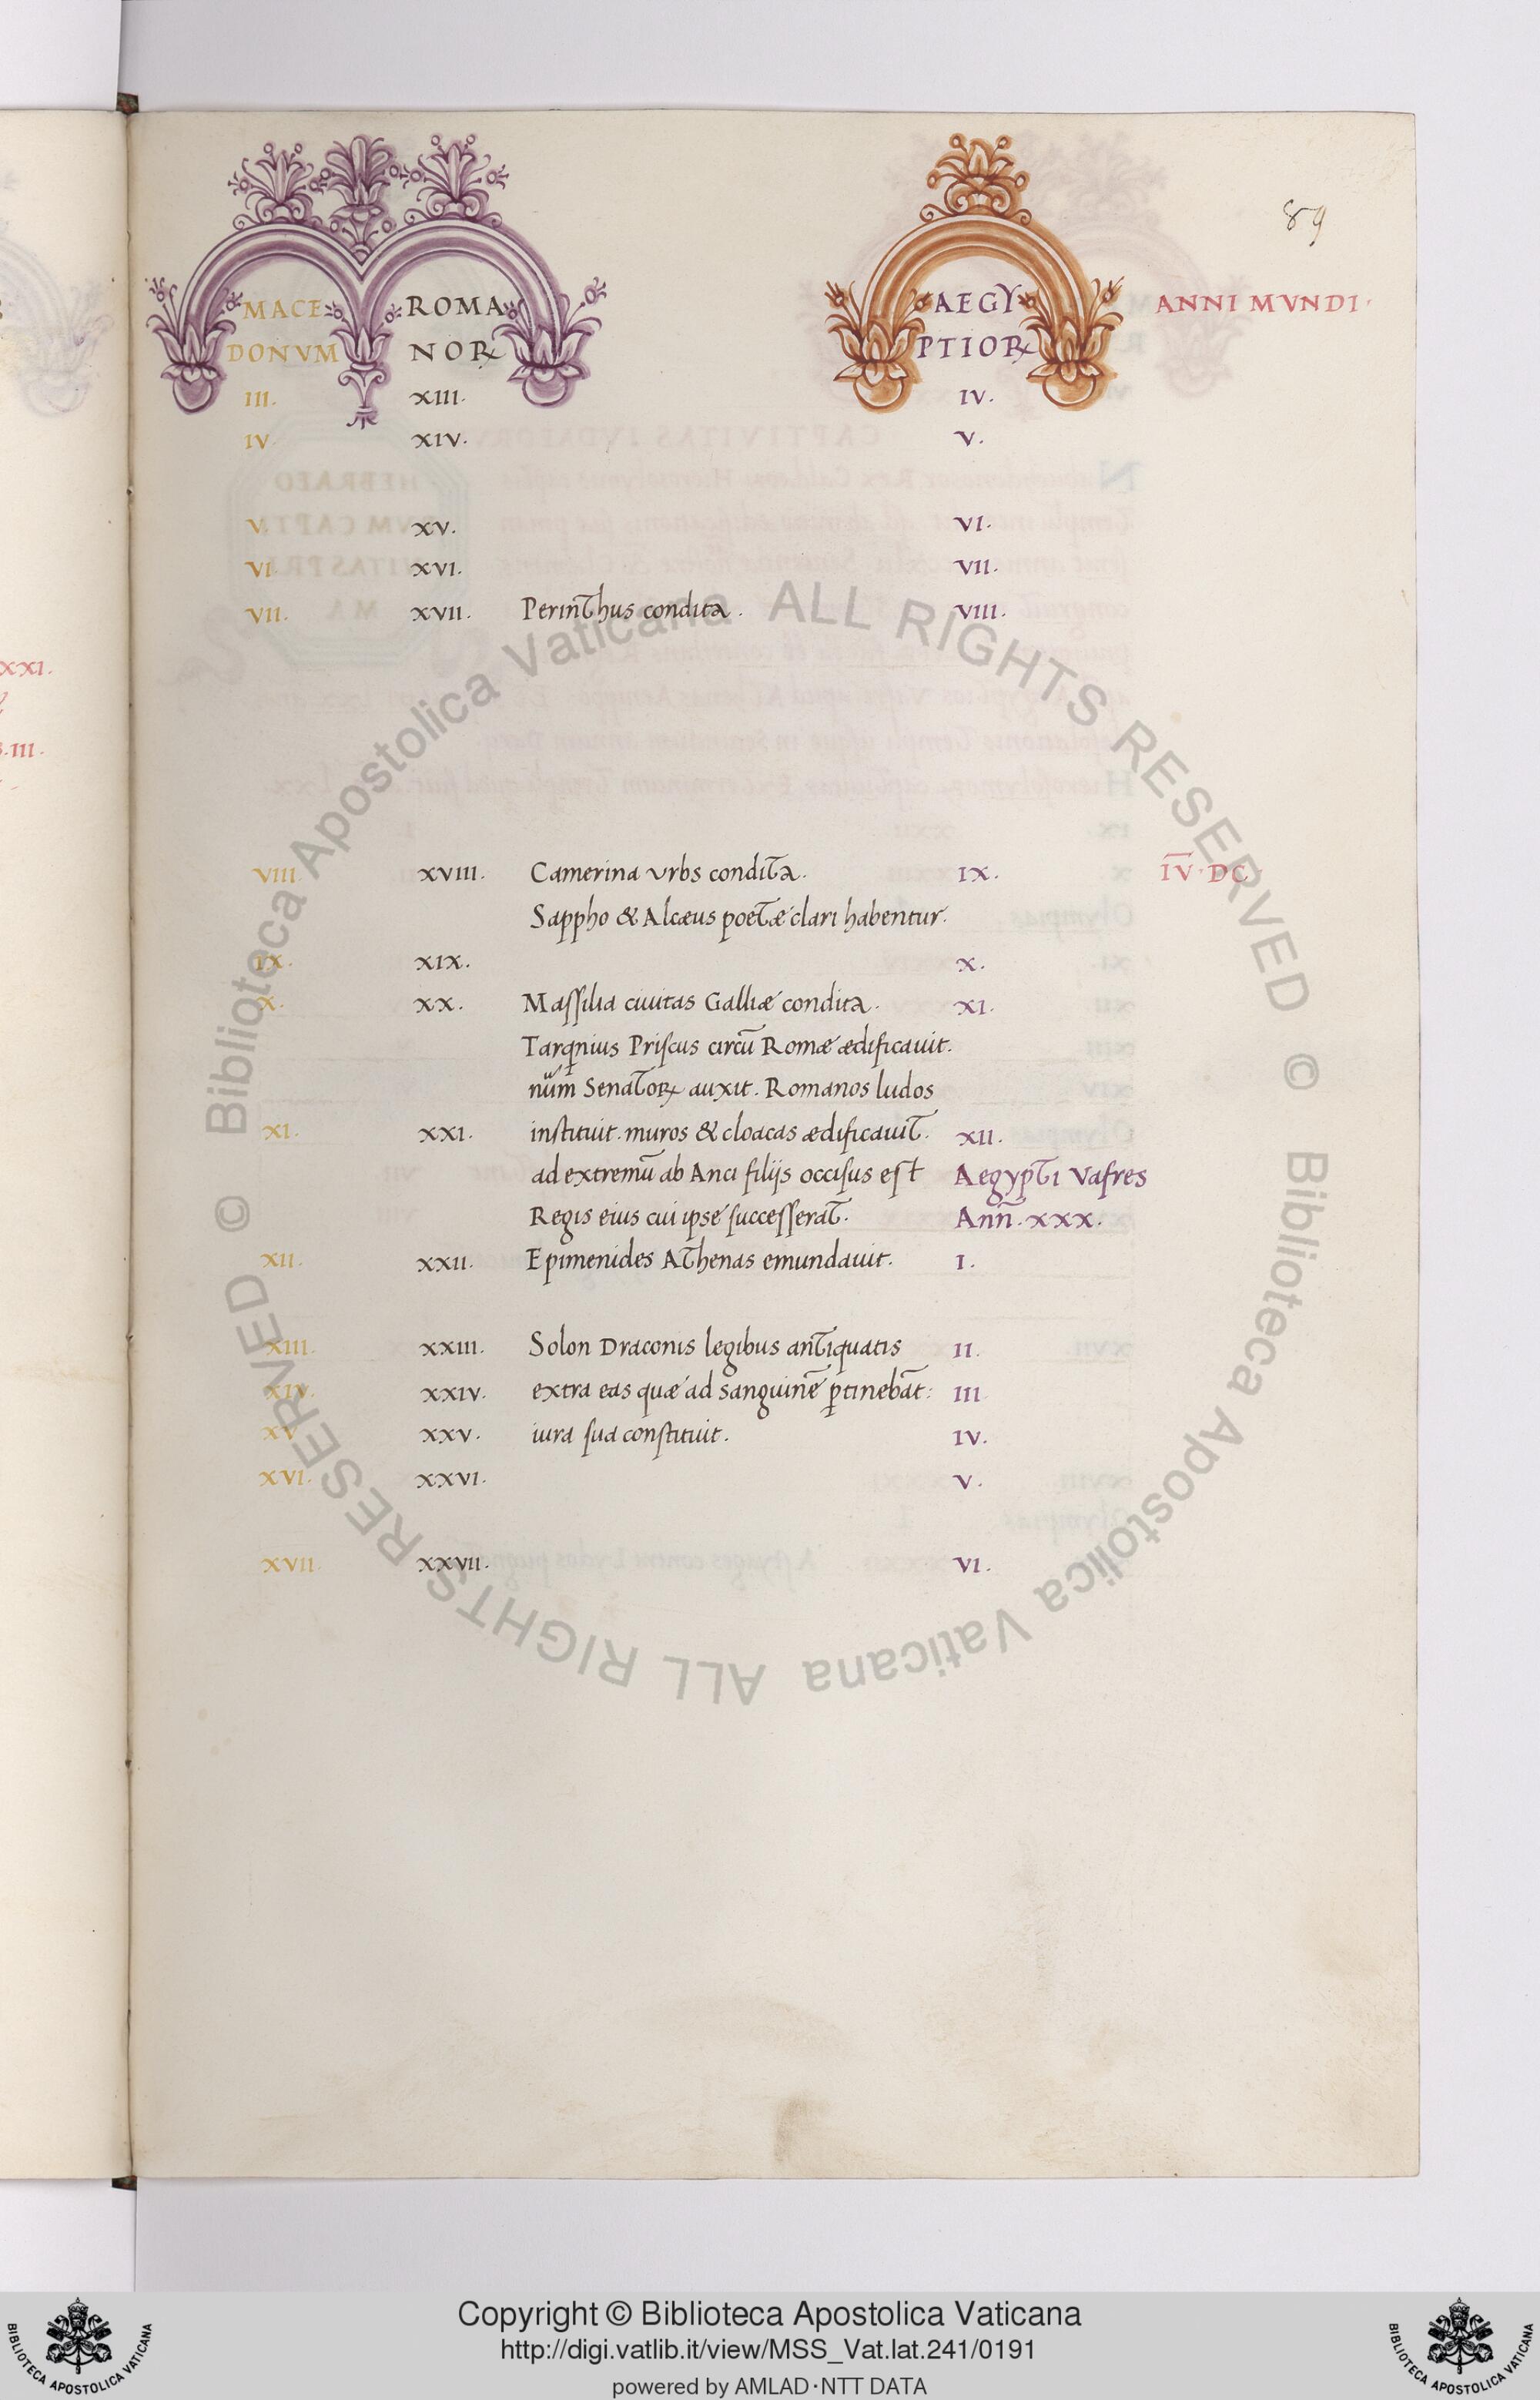 89
MACE ROMA AEGY ANNI MVNDI.
DONVM NOꝝ PTIOꝝ
III. XIII. IV.
IV. XIV. V.
V. XV. VI.
VI. XVI. VII.
VII. XVII. Perinthus condita. VIII.
VIII. XVIII. Camerina vrbs condita. IX. I̅V̅. DC
Sappho & Alcæus poetæ clari habentur.
IX. XIX. X.
X. XX. Maſſilia ciuitas Galliæ condita. XI.
Tarqnius Priſcus circū Romæ ædificauit.
nūm Senatoꝝ auxit. Romanos ludos
XI. XXI. inſtituit. muros & cloacas ædificauit. XII.
ad extremū ab Anci filijs occiſus eſt Aegypti Vafres
Regis eius cui ipse ſucceſſerat. Ann̄. XXX.
XII. XXII. Epimenides Athenas emundauit. I.
XIII. XXIII. Solon Draconis legibus antiquatis II.
XIV. XXIV. extra eas quæ ad sanguinē ꝑtinebāt: III
XV XXV. iura ſua conſtituit. IV.
XVI. XXVI. V.
XVII. XXVII. VI.
XXI.
.III.
© Biblioteca Apostolica Vaticana ALL RIGHTS RESERVED
© Biblioteca Apostolica Vaticana ALL RIGHTS RESERVED
Copyright © Biblioteca Apostolica Vaticana
http://digi.vatlib.it/view/MSS_Vat.lat.241/0191
powered by AMLAD·NTT DATA
BIBLIOTECA APOSTOLICA VATICANA
BIBLIOTECA APOSTOLICA VATICANA